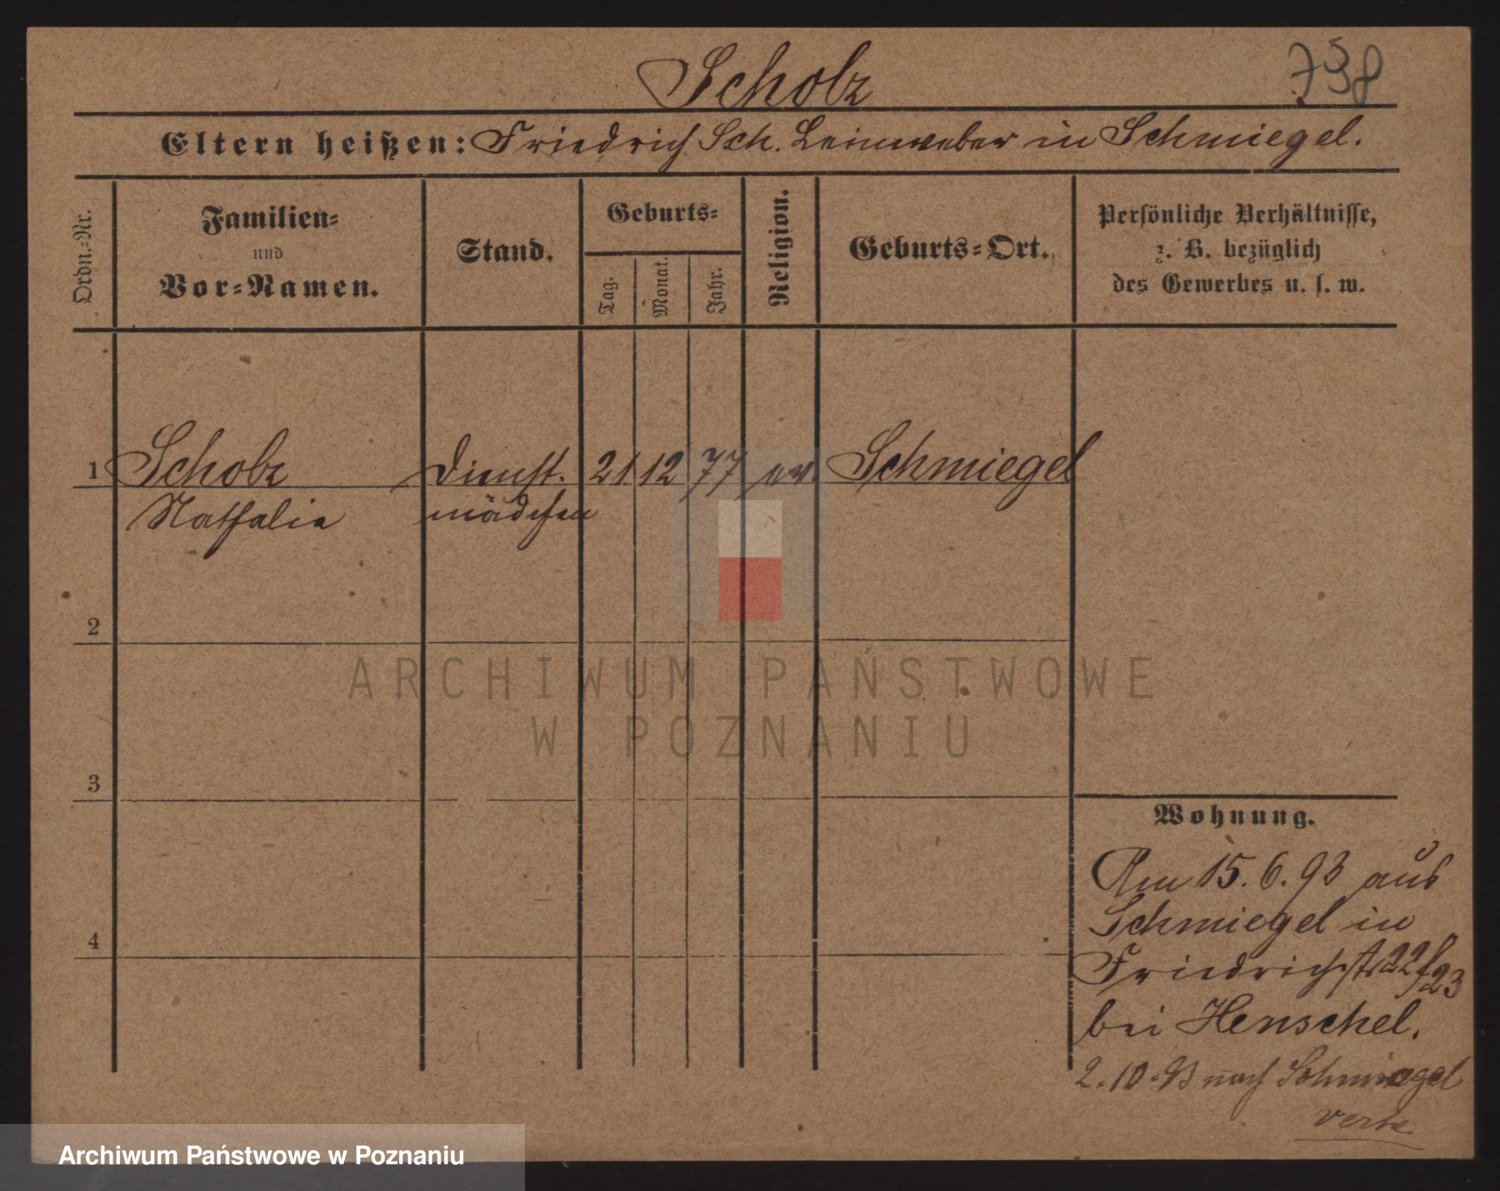 Scholz
738
Eltern heißen: Friedrich Sch. Leinweber in Schmiegel.
Ordn.=Nr.
Familien=
und
Vor=Namen.
Stand.
Geburts=
Tag.
Monat.
Jahr.
Religion.
Geburts=Ort.
Persönliche Verhältnisse,
z. B. bezüglich
des Gewerbes u. s. w.
1 Scholz Dienst. 21 12 77 ev. Schmiegel
Nathalie mädchen
2
3
4
ARCHIWUM PAŃSTWOWE
W POZNANIU
Wohnung.
Am 15.6.93 aus
Schmiegel in
Friedrichstr 22/23
bei Henschel.
2.10.93 nach Schmiegel
verz
Archiwum Państwowe w Poznaniu